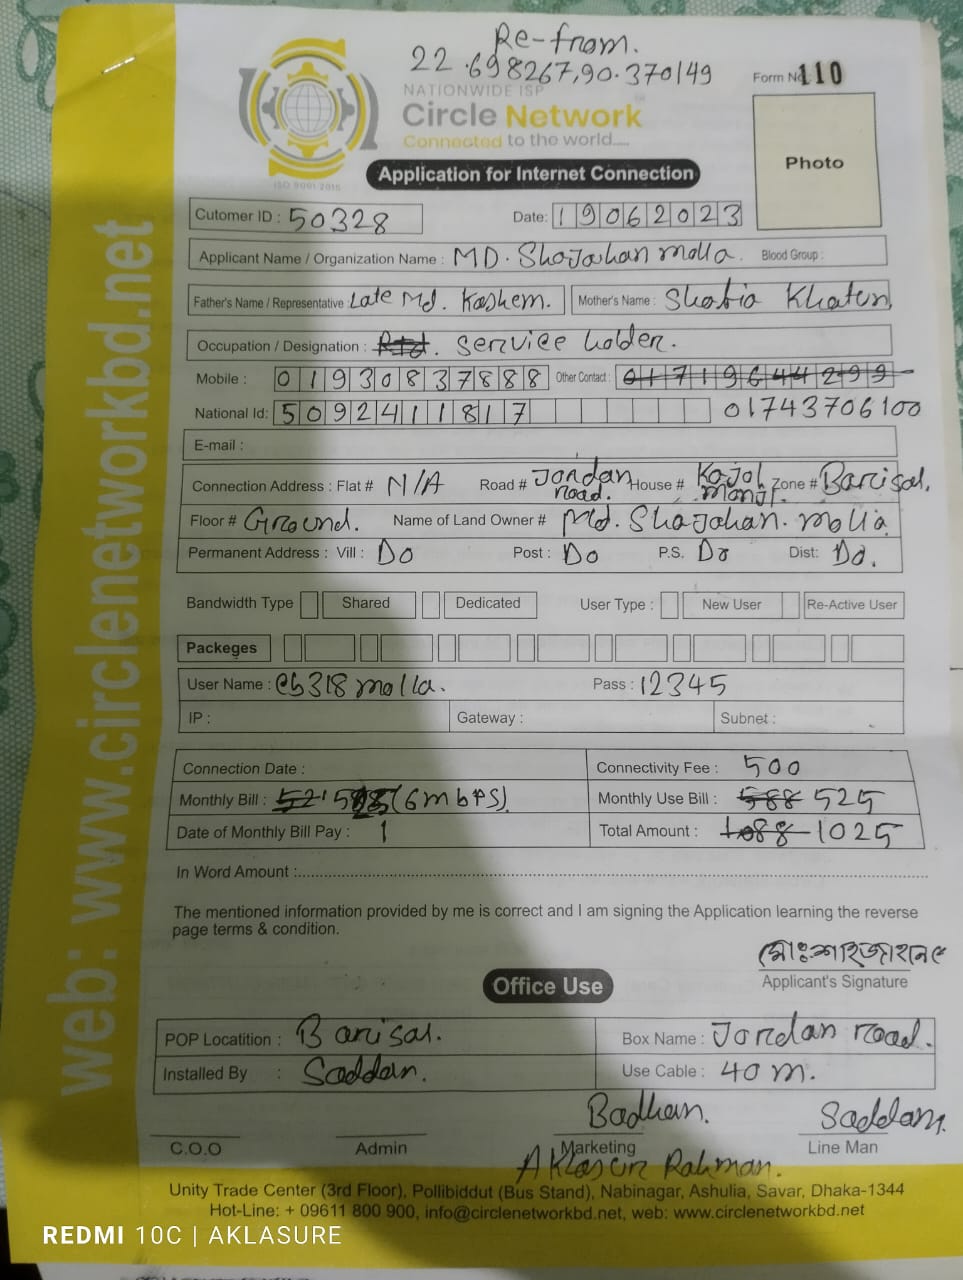 Re-from.
22.698267,90.370149
Form No. 110
NATIONWIDE ISP
Circle Network
Connected to the world.....
ISO 9001:2015
Photo
Application for Internet Connection
Cutomer ID : 50328 Date: 19062023
Applicant Name / Organization Name : MD. Shajahan molla. Blood Group :
Father's Name / Representative : Late Md. Kashem. Mother's Name : Shabia Khaton,
Occupation / Designation : Rtd. service holder.
Mobile : 01930837888 Other Contact : 01719644299
National Id: 5092411817 01743706100
E-mail :
Connection Address : Flat # N/A Road # Jordan road. House # Kajol Zone # Barisal,
Floor # Ground. Name of Land Owner # Md. Shajahan. molla
Permanent Address : Vill : Do Post : Do P.S. Do Dist: Do.
Bandwidth Type Shared Dedicated User Type : New User Re-Active User
Packeges
User Name : cb318molla. Pass : 12345
IP : Gateway : Subnet :
Connection Date : Connectivity Fee : 500
Monthly Bill : (6mbps) Monthly Use Bill : 588 525
Date of Monthly Bill Pay : 1 Total Amount : 1088 1025
In Word Amount :
The mentioned information provided by me is correct and I am signing the Application learning the reverse
page terms & condition.
মোঃ শাহজাহান
Applicant's Signature
Office Use
POP Locatition : Barisal. Box Name : Jordan road.
Installed By : Saddam. Use Cable : 40 m.
Badhan. Saddam.
C.O.O Admin Marketing Line Man
Aklasur Rahman.
Unity Trade Center (3rd Floor), Pollibiddut (Bus Stand), Nabinagar, Ashulia, Savar, Dhaka-1344
Hot-Line: + 09611 800 900, info@circlenetworkbd.net, web: www.circlenetworkbd.net
web: www.circlenetworkbd.net
REDMI 10C | AKLASURE